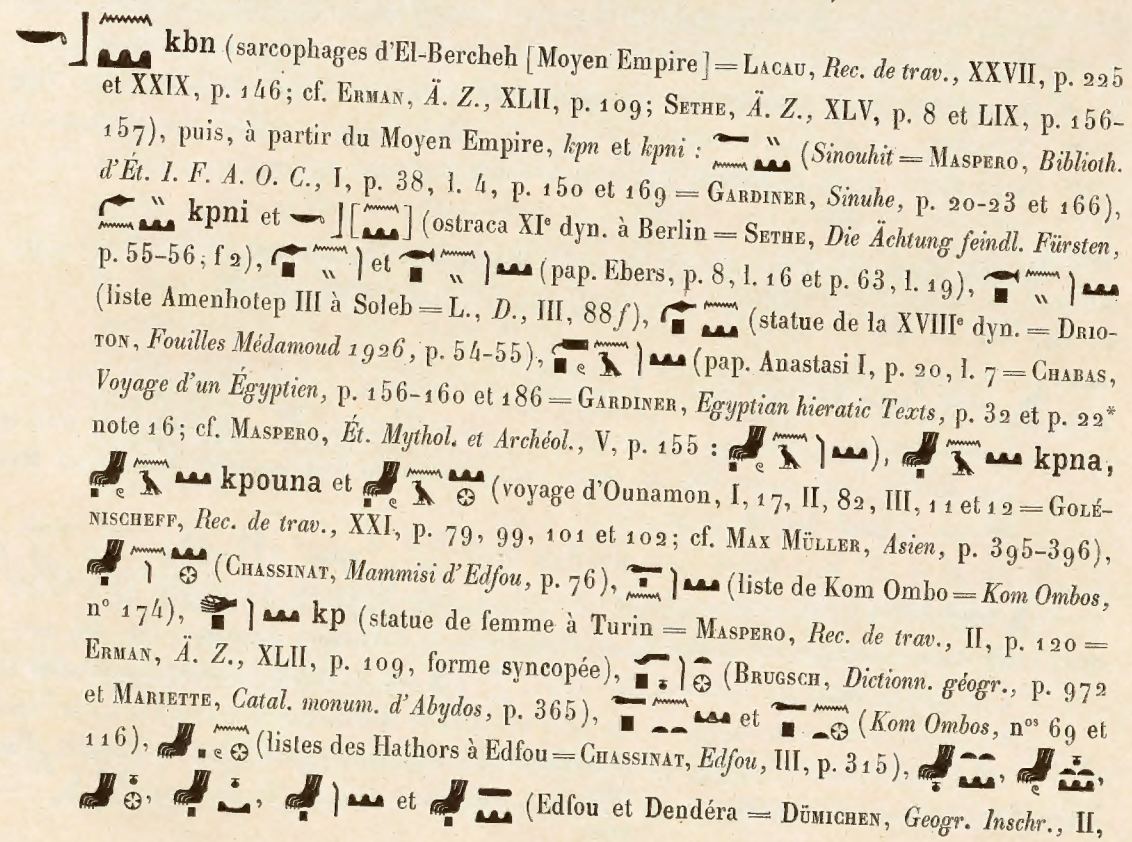 kbn (sarcophages d'El-Bercheh [Moyen Empire] = LACAU, Rec. de trav., XXVII, p. 225
et XXIX, p. 146; cf. ERMAN, Ä. Z., XLII, p. 109; SETHE, Ä. Z., XLV, p. 8 et LIX, p. 156-
157), puis, à partir du Moyen Empire, kpn et kpni : (Sinouhit = MASPERO, Biblioth.
d'Ét. I. F. A. O. C., I, p. 38, l. 4, p. 150 et 169 = GARDINER, Sinuhe, p. 20-23 et 166),
kpni et [ ] (ostraca XIe dyn. à Berlin = SETHE, Die Ächtung feindl. Fürsten,
p. 55-56, f 2), et (pap. Ebers, p. 8, l. 16 et p. 63, l. 19),
(liste Amenhotep III à Soleb = L., D., III, 88 f), (statue de la XVIIIe dyn. = DRIO-
TON, Fouilles Médamoud 1926, p. 54-55), (pap. Anastasi I, p. 20, l. 7 = CHABAS,
Voyage d'un Égyptien, p. 156-160 et 186 = GARDINER, Egyptian hieratic Texts, p. 32 et p. 22*
note 16; cf. MASPERO, Ét. Mythol. et Archéol., V, p. 155 : ), kpna,
kpouna et (voyage d'Ounamon, I, 17, II, 82, III, 11 et 12 = GOLÉ-
NISCHEFF, Rec. de trav., XXI, p. 79, 99, 101 et 102; cf. MAX MÜLLER, Asien, p. 395-396),
(CHASSINAT, Mammisi d'Edfou, p. 76), (liste de Kom Ombo = Kom Ombos,
n° 174), kp (statue de femme à Turin = MASPERO, Rec. de trav., II, p. 120 =
ERMAN, Ä. Z., XLII, p. 109, forme syncopée), (BRUGSCH, Dictionn. géogr., p. 972
et MARIETTE, Catal. monum. d'Abydos, p. 365), et (Kom Ombos, nos 69 et
116), (listes des Hathors à Edfou = CHASSINAT, Edfou, III, p. 315), , ,
, , et (Edfou et Dendéra = DÜMICHEN, Geogr. Inschr., II,